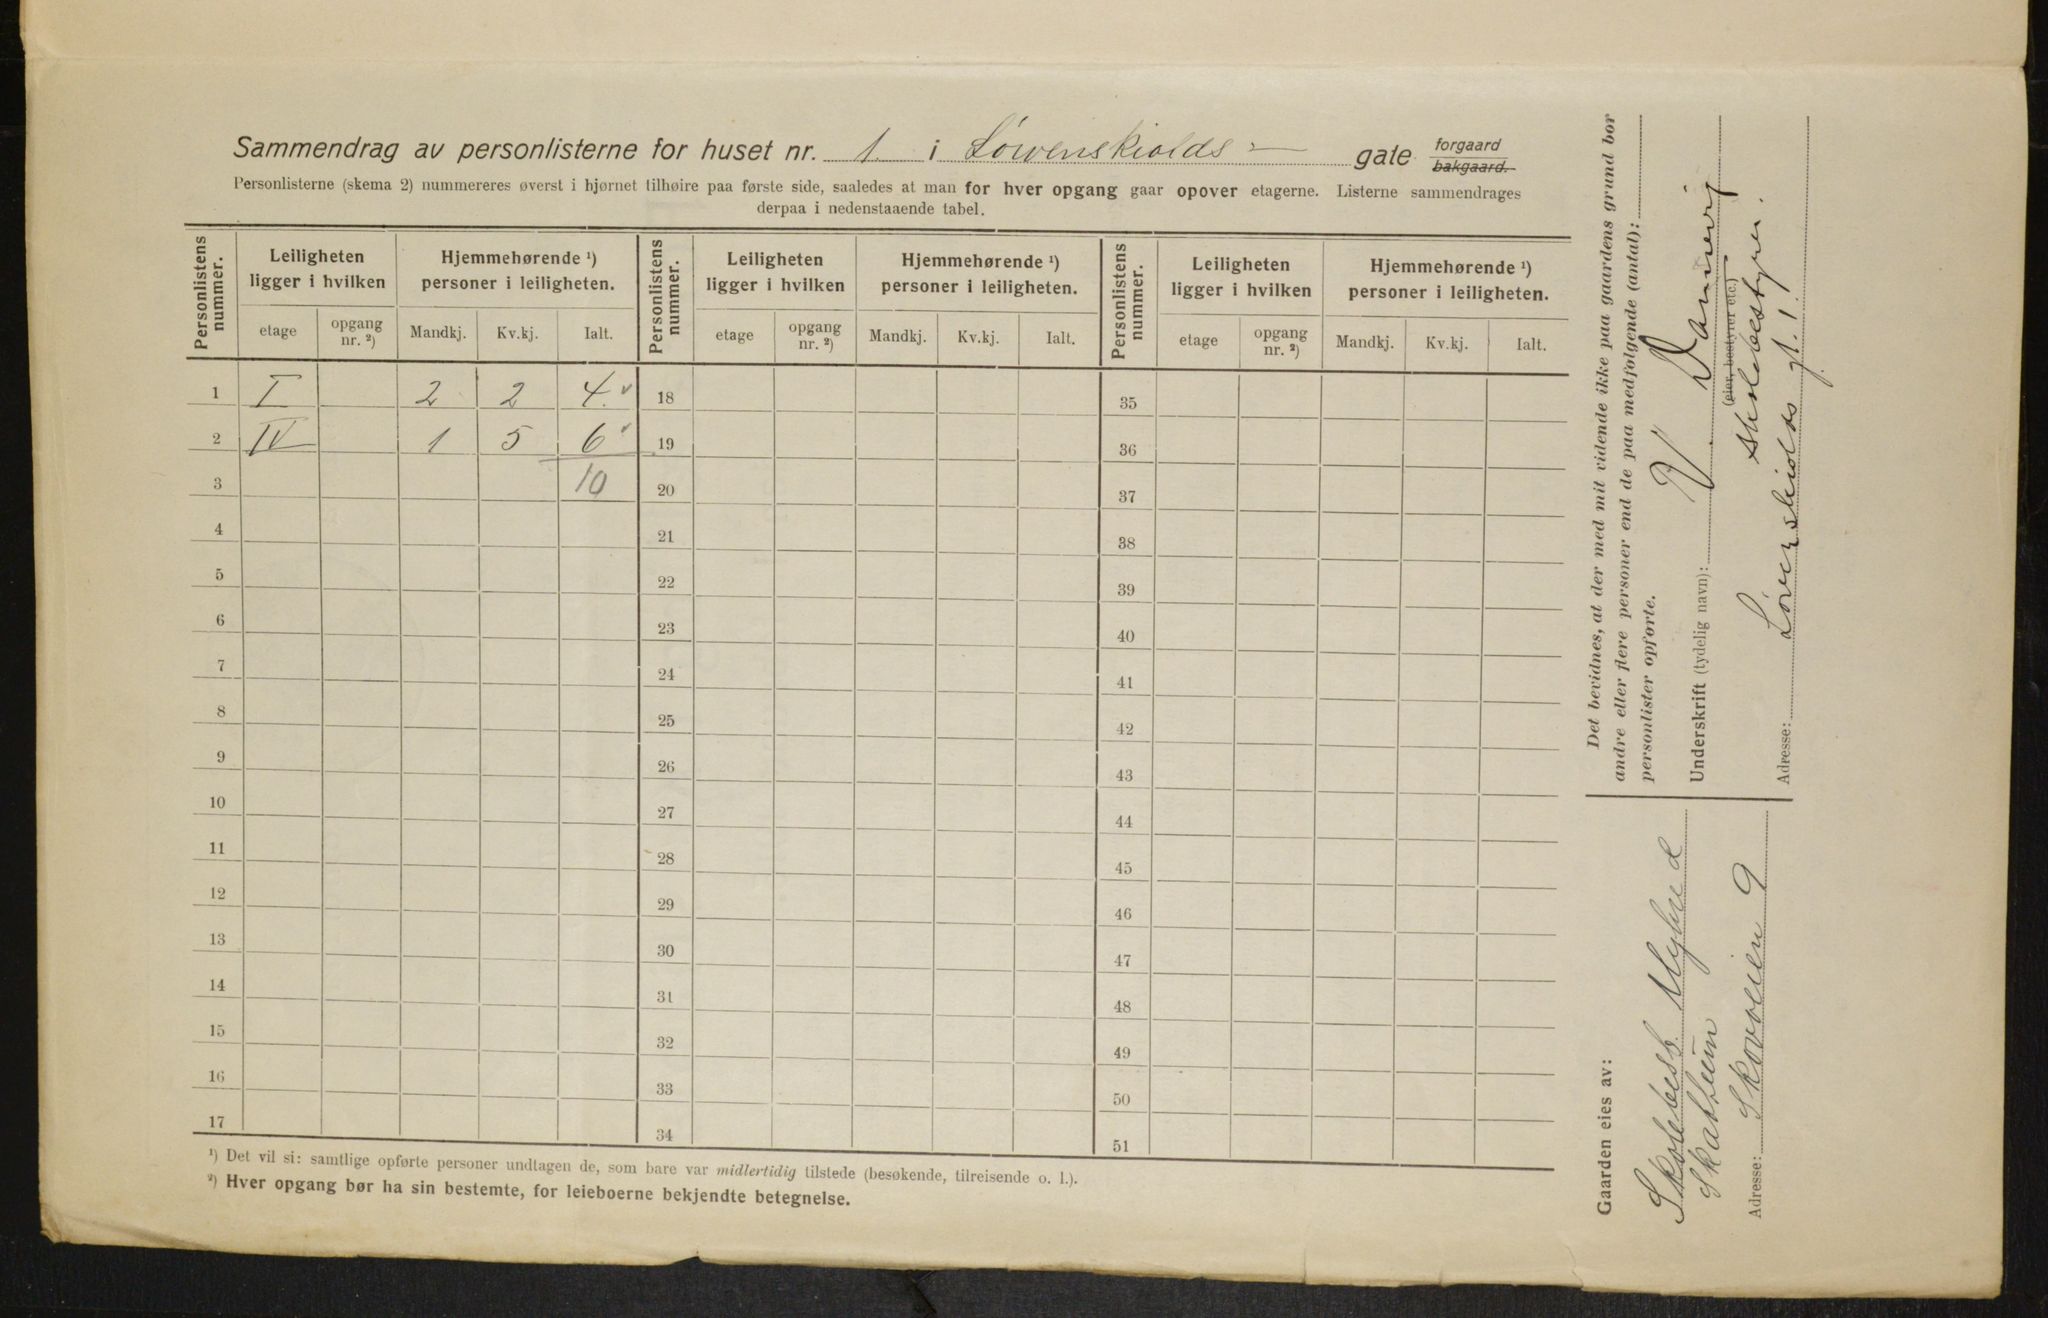 Sammendrag av personlisterne for huset nr. 1. i Løwenskiolds – gate forgaard bakgaard.
Personlisterne (skema 2) nummereres øverst i hjørnet tilhøire paa første side, saaledes at man for hver opgang gaar opover etagerne. Listerne sammendrages
derpaa i nedenstaaende tabel.
Personlistens nummer. Leiligheten ligger i hvilken Hjemmehørende ¹) personer i leiligheten. Personlistens nummer. Leiligheten ligger i hvilken Hjemmehørende ¹) personer i leiligheten. Personlistens nummer. Leiligheten ligger i hvilken Hjemmehørende ¹) personer i leiligheten.
etage opgang nr. ²) Mandkj. Kv.kj. Ialt. etage opgang nr. ²) Mandkj. Kv.kj. Ialt. etage opgang nr. ²) Mandkj. Kv.kj. Ialt.
1 I 2 2 4. 18 35
2 IV 1 5 6 19 36
3 10 20 37
4 21 38
5 22 39
6 23 40
7 24 41
8 25 42
9 26 43
10 27 44
11 28 45
12 29 46
13 30 47
14 31 48
15 32 49
16 33 50
17 34 51
¹) Det vil si: samtlige opførte personer undtagen de, som bare var midlertidig tilstede (besøkende, tilreisende o. l.).
²) Hver opgang bør ha sin bestemte, for leieboerne bekjendte betegnelse.
Det bevidnes, at der med mit vidende ikke paa gaardens grund bor
andre eller flere personer end de paa medfølgende (antal):
personlister opførte.
Underskrift (tydelig navn):
(eier, bestyrer etc.)
skolebestyrer.
Adresse: Løvenskiolds gt. 1!
Gaarden eies av:
Skolebest.
Adresse: Skovveien 9